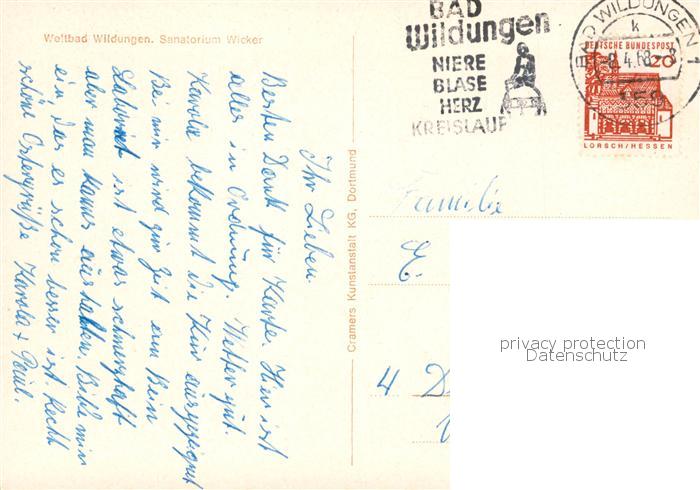 Weltbad Wildungen. Sanatorium Wicker
BAD
Wildungen
NIERE
BLASE
HERZ
KREISLAUF
BAD WILDUNGEN 1
k
-8.4.68-8
359
DEUTSCHE BUNDESPOST
20
LORSCH/HESSEN
Cramers Kunstanstalt KG. Dortmund
Ihr Lieben.
Besten Dank für Karte. Hier ist
alles in Ordnung. Wetter gut.
Karola bekommt die Kur ausgezeignet
Bei mir wird zur Zeit am Bein
ist etwas schmerzhaft
aber man kanns aushalten. Bilde mir
ein, das es schon besser ist. Recht
schöne Ostergrüße Karola + Paul.
Familie
E.
4 D
privacy protection
Datenschutz